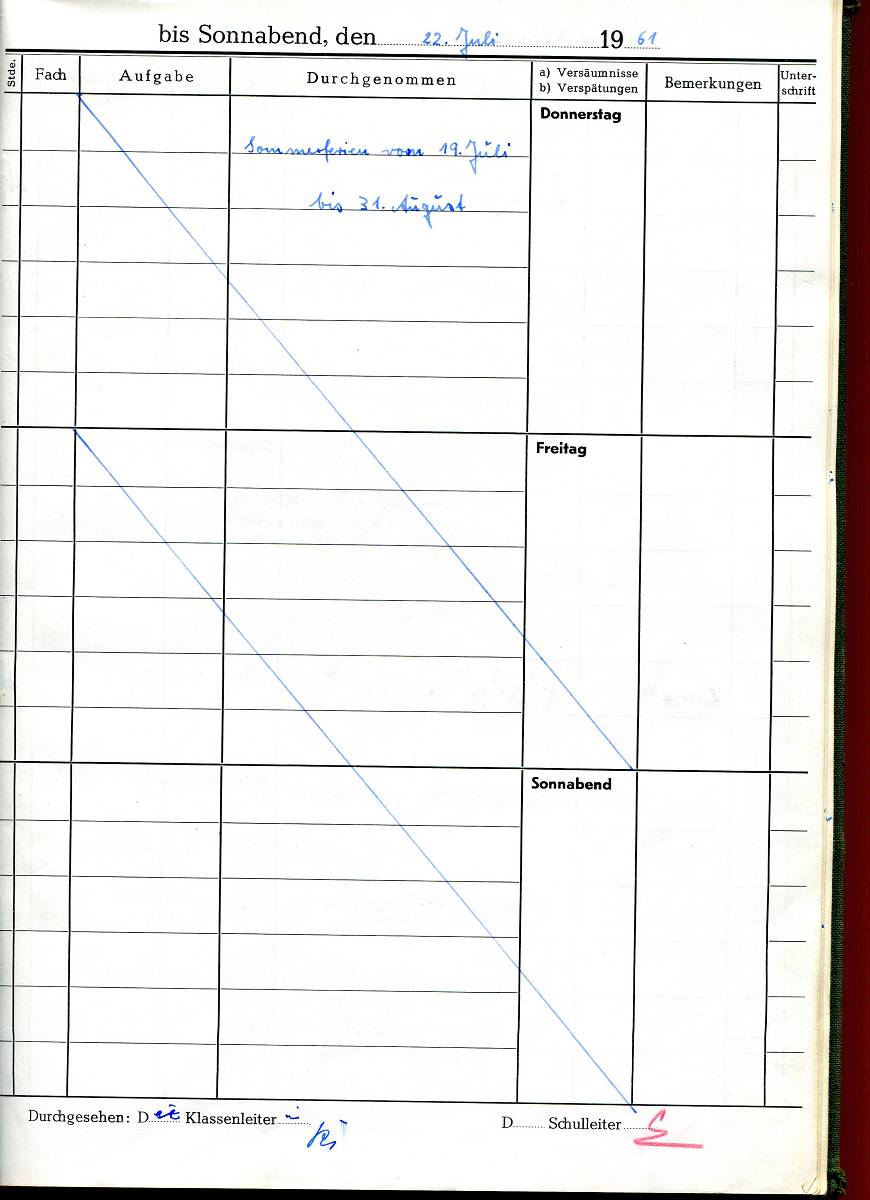 bis Sonnabend, den 22. Juli 19 61
Stde. Fach Aufgabe Durchgenommen a) Versäumnisse b) Verspätungen Bemerkungen Unter-schrift
Donnerstag
Sommerferien vom 19. Juli
bis 31. August
Freitag
Sonnabend
Durchgesehen: D Klassenleiter D Schulleiter